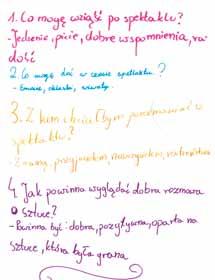 1. Co mogę wziąść po spektaklu?
- Jedzenie, picie, dobre wspomnienia, ra-
dość
2. Co mogę dać w czasie spektaklu?
- Emocje, oklaski, wiwaty.
3. Z kim chciał(a)bym porozmawiać o
spektaklu?
- Z mamą, przyjacielem, nauczycielem,
4. Jak powinna wyglądać dobra rozmowa
o sztuce?
- Powinna być: dobra, pozytywna, oparta na
sztuce, która była grana